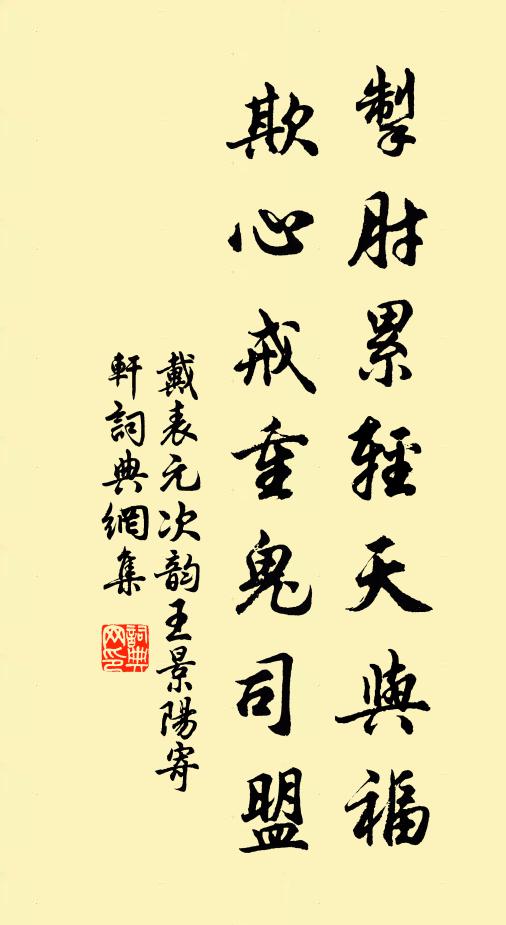 掣肘累輕天與福
欺心戒重鬼司盟
戴表元次韵王景陽寄
軒詞典網集
詞典
网印